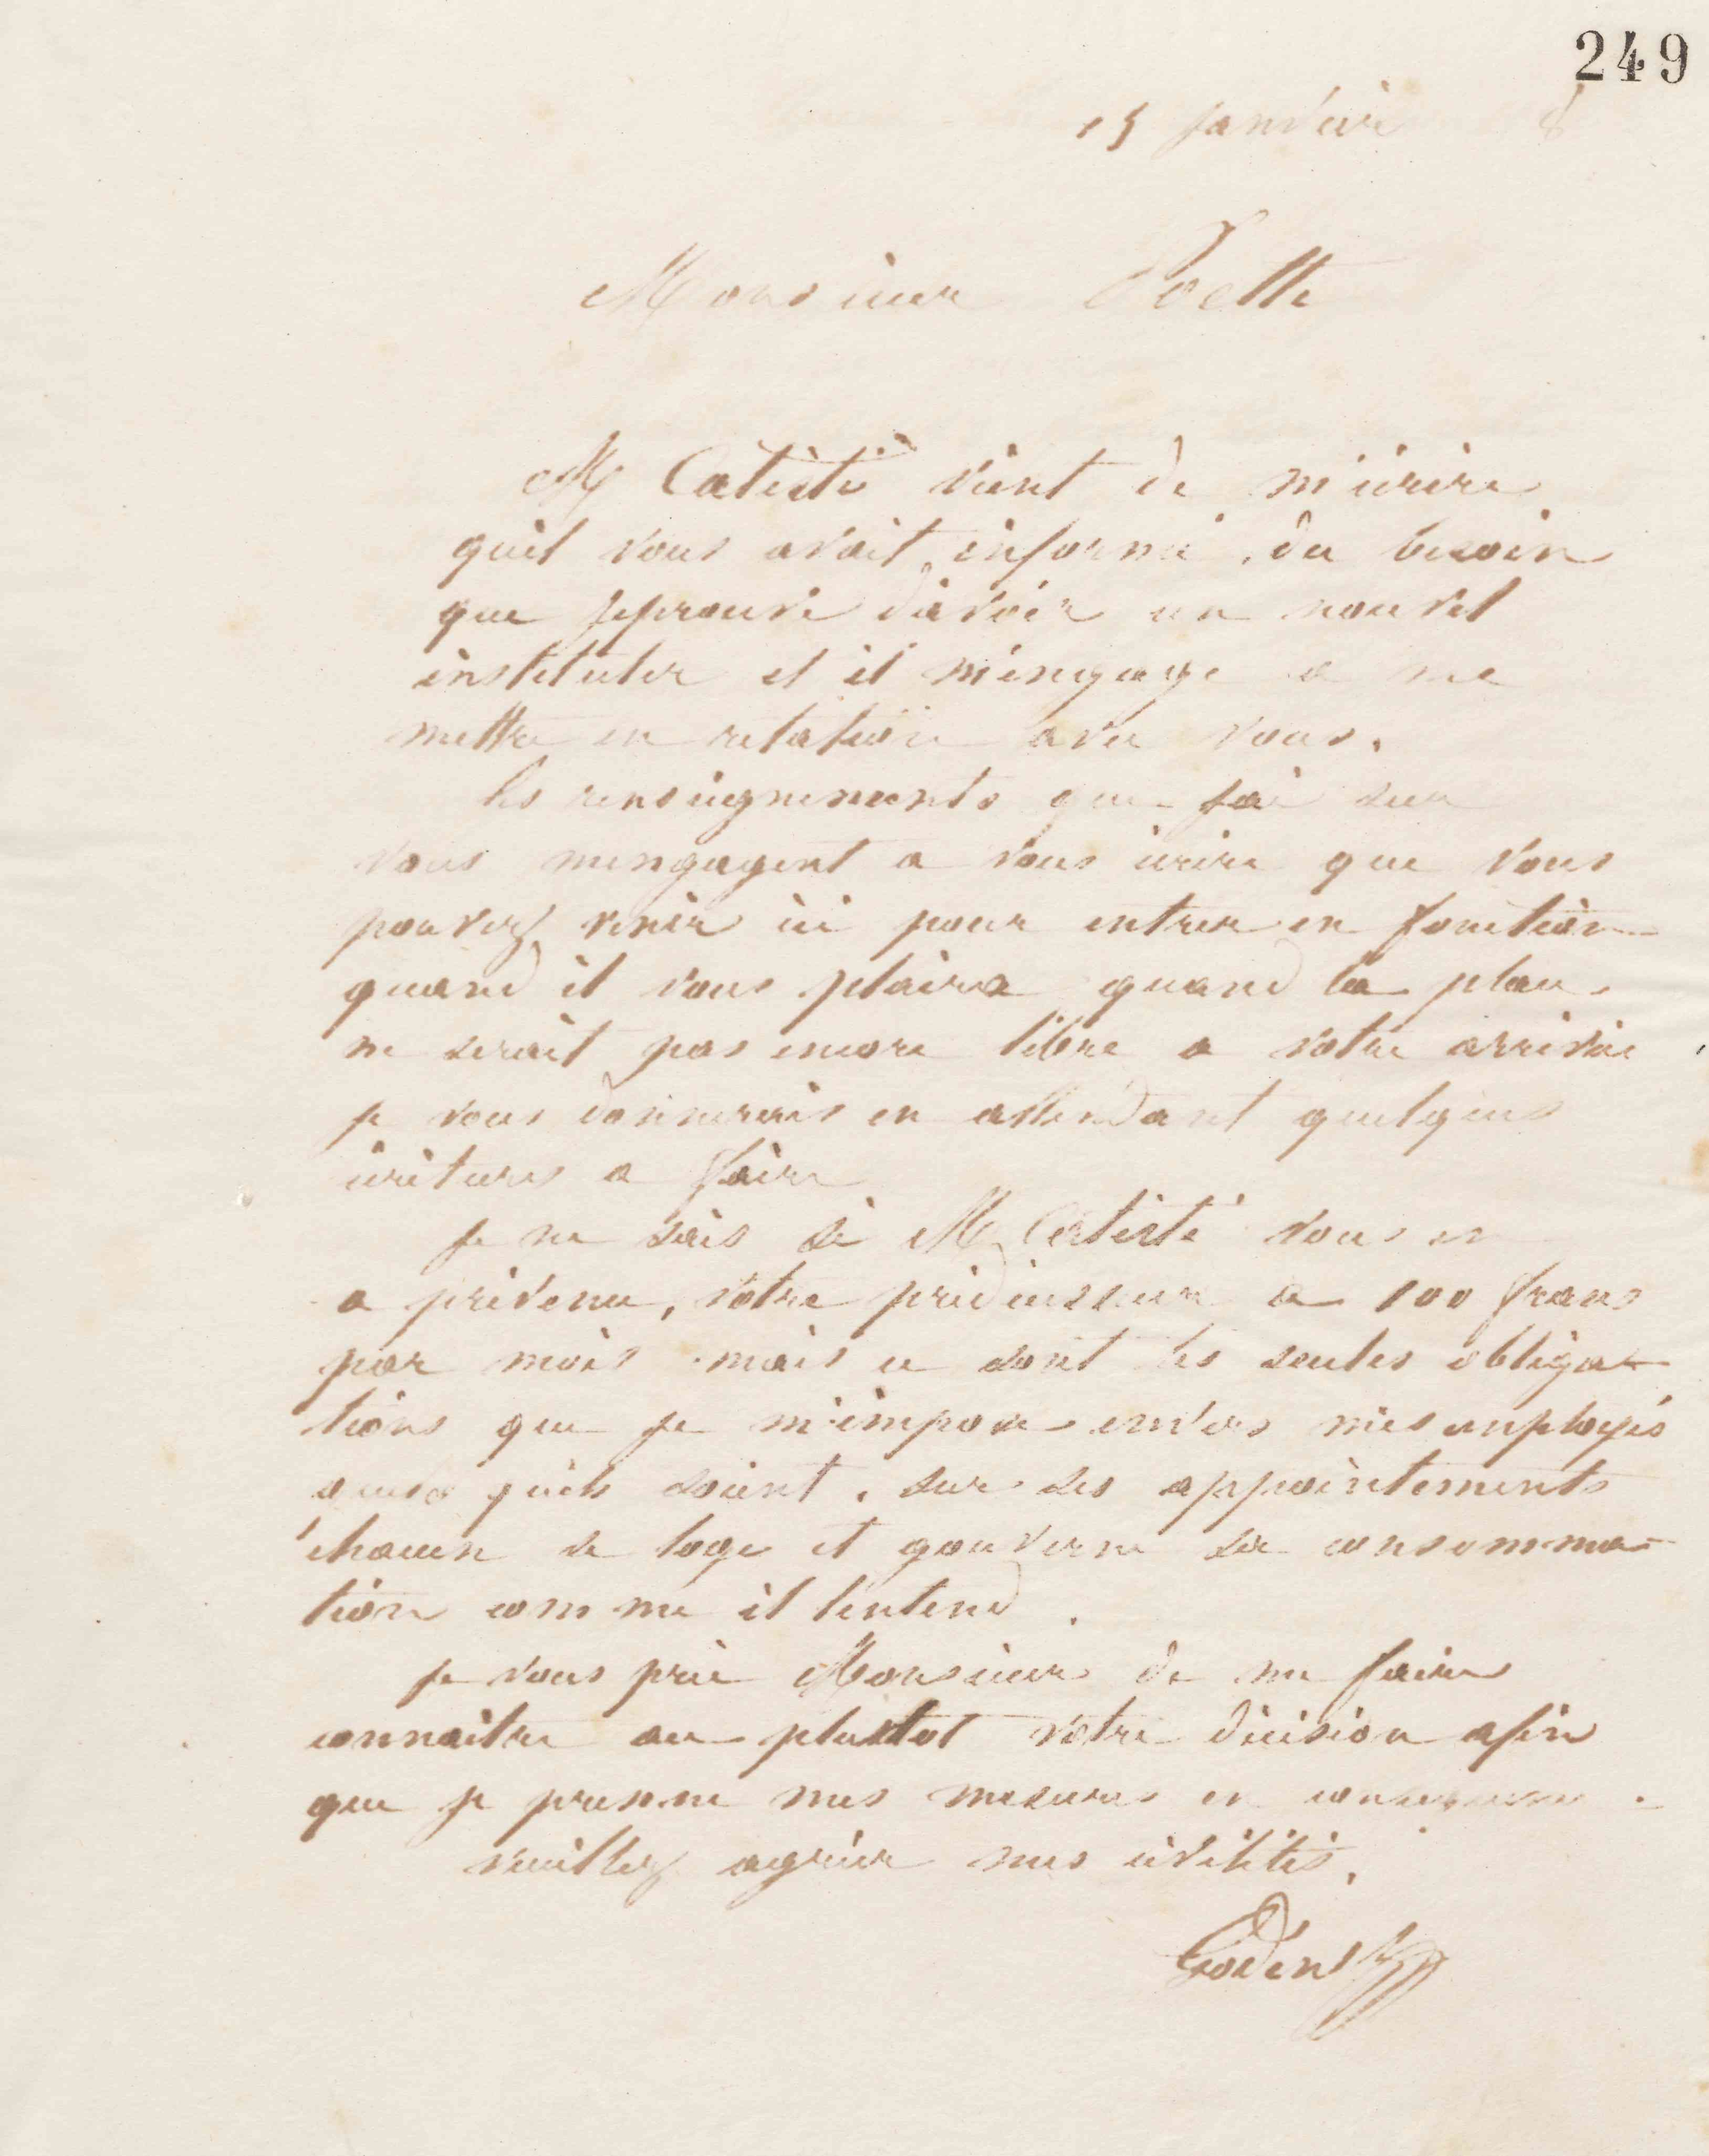 249
15 janvier 8
Monsieur Poette
M Catésté vient de m'écrire
quil vous avait informé du besoin
que jeprouve d'avoir un nouvel
instituter et il m'engage a me
mettre en relation avec vous.
les renseignements que jai sur
vous mengagent a vous écrire que vous
pouvez venir ici pour entrer en fonction
quand il vous plaira quand la place
ne serait pas encore libre a votre arrivée
je vous donnerais en attendant quelques
écritures a faire
je ne sais si M Catésté vous en
a prévenu, votre prédécesseur a 100 francs
par mois mais ce sont les seules obliga-
tions que je m'impose envers mes employés
quils soient. sur ses appointements
chacun se loge et gouverne sa consomma-
tion comme il lentend.
je vous prie Monsieur de me faire
connaitre au plustot votre décision afin
que je prenne mes mesures en consequence.
veuillez agréer mes civilités.
Godin